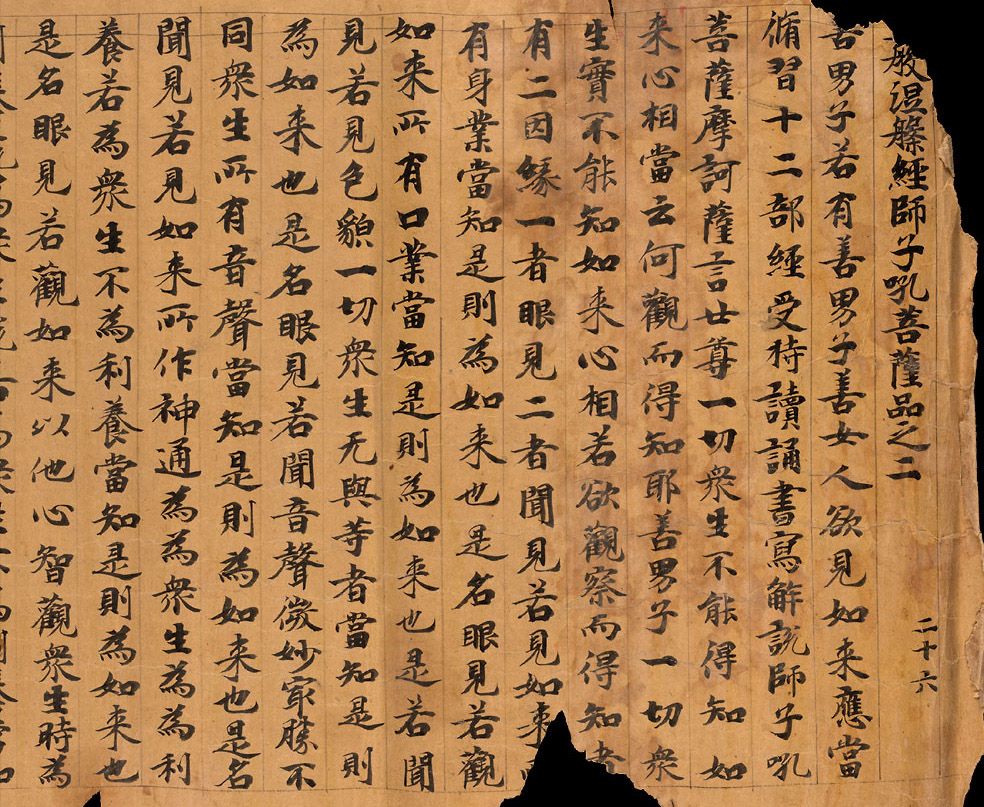 般涅槃經師子吼菩薩品之二 二十六
善男子若有善男子善女人欲見如来應當
脩習十二部經受持讀誦書寫解說師子吼
菩薩摩訶薩言世尊一切衆生不能得知如
来心相當云何觀而得知耶善男子一切衆
生實不能知如来心相若欲觀察而得知者
有二因緣一者眼見二者聞見若見如来
有身業當知是則為如来也是名眼見若觀
如来所有口業當知是則為如来也是若聞
見若見色貌一切衆生无與等者當知是則
為如来也是名眼見若聞音聲微妙寂勝不
同衆生所有音聲當知是則為如来也是名
聞見若見如来所作神通為為衆生為為利
養若為衆生不為利養當知是則為如来也
是名眼見若觀如来以他心智觀衆生時為